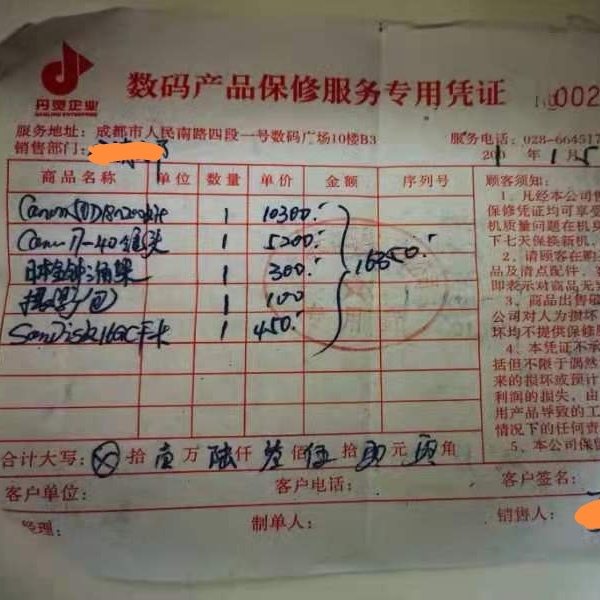 丹灵企业
数码产品保修服务专用凭证
No 002
服务地址: 成都市人民南路四段一号数码广场10楼B3
服务电话: 028-664517
销售部门:
200 年 1月5
商品名称 单位 数量 单价 金额 序列号
1 10300.
1 5200.
1 300.
1 100
SanDisk16GC卡 1 450.
16350.
合计大写: ⊗ 拾 壹 万 陆 仟 叁 佰 伍 拾 元 角
客户单位:
客户电话:
客户签名:
经理:
制单人:
销售人:
顾客须知:
1、凡经本公司售
保修凭证均可享受
机质量问题在机身
下七天保换新机。
2、请顾客在购买
品及清点配件、
即表示对商品无
3、商品出售
公司对人为损坏
坏均不提供保修服
4、本凭证不承
括但不限于偶然
来的损坏或预计
利润的损失，由
用产品导致的工
情况下的任何责
5、本公司保留